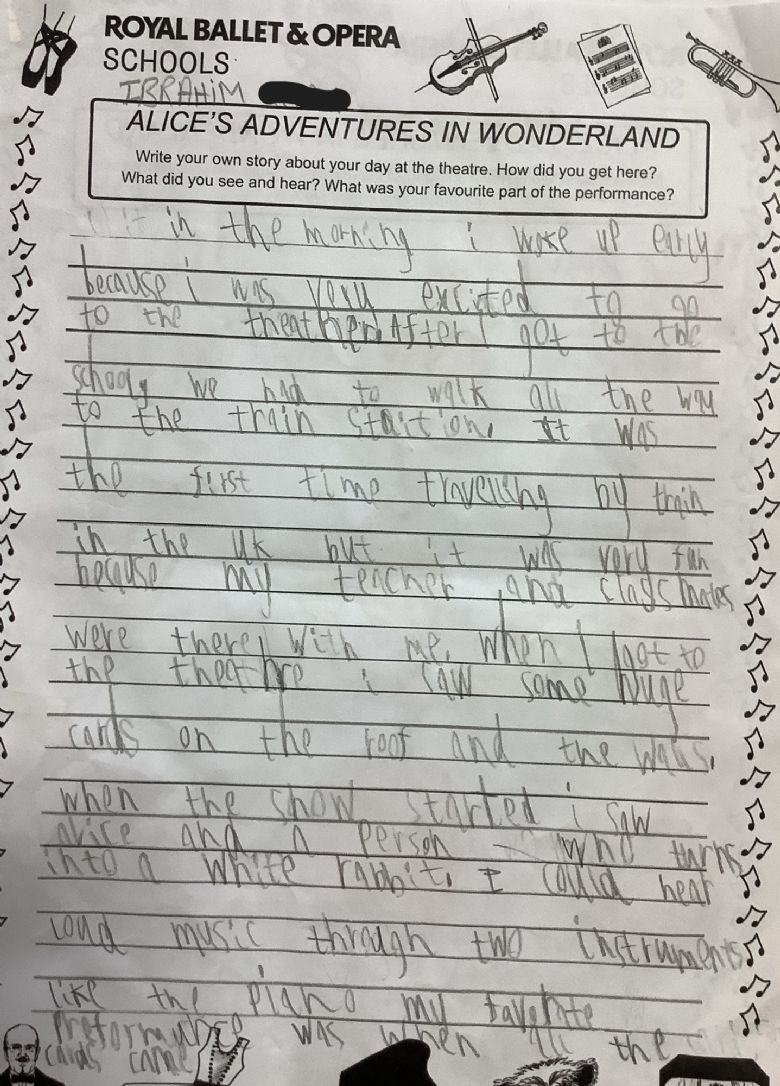 ROYAL BALLET & OPERA
SCHOOLS
IBRAHIM
ALICE'S ADVENTURES IN WONDERLAND
Write your own story about your day at the theatre. How did you get here?
What did you see and hear? What was your favourite part of the performance?
in the morning i woke up early
because i was very excited to go
to the After I got to the
we had to walk all the way
to the train staition. It was
the first time travelling by train
in the uk but it was very fun
because my teacher and classmates
were there with me. when I got to
the theathre i saw some huge
cards on the roof and the walls.
when the show started i saw
alice and a person who turns
into a white rabbit. I could hear
loud music through two instruments
like the piano my favorite
was when all the
cards came